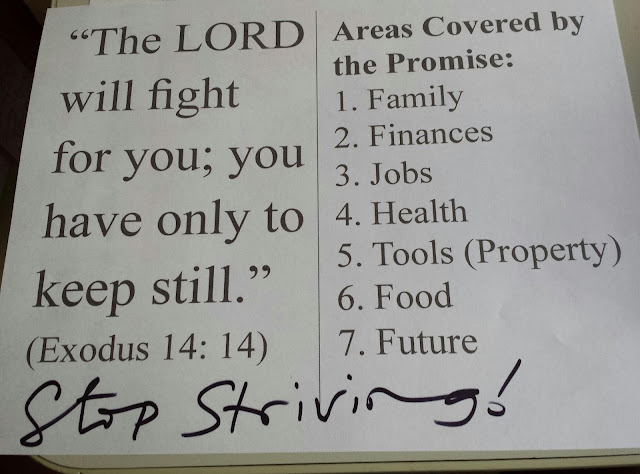 “The LORD
will fight
for you; you
have only to
keep still.”
(Exodus 14: 14)
Areas Covered by
the Promise:
1. Family
2. Finances
3. Jobs
4. Health
5. Tools (Property)
6. Food
7. Future
Stop Striving!